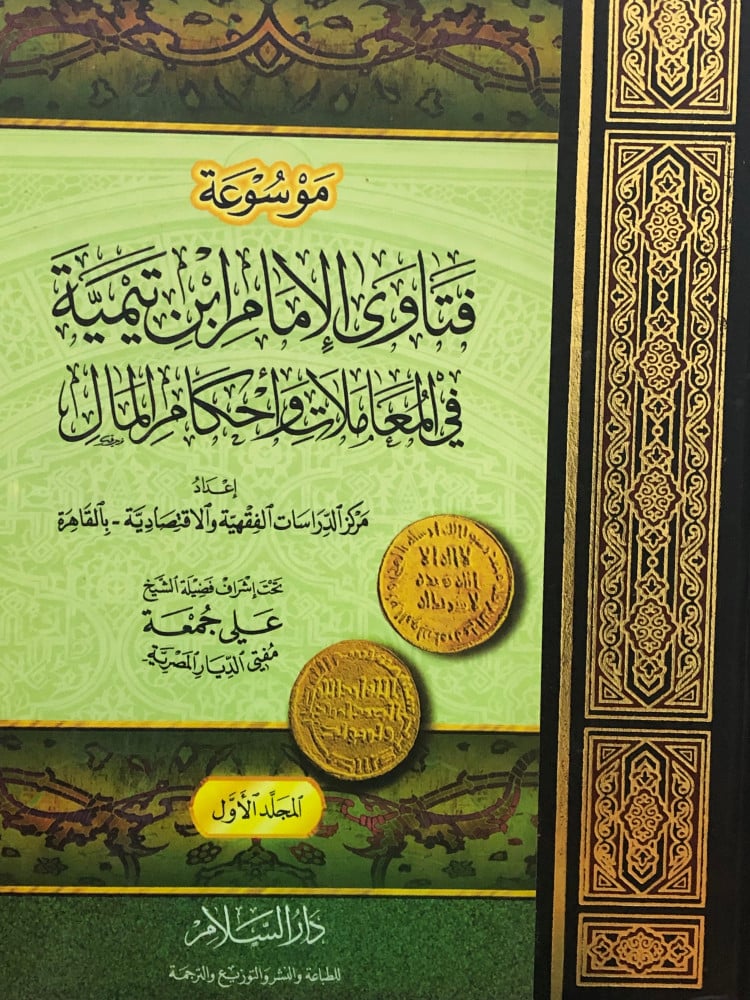 مَوْسُوعَة
فَتَاوَى الإِمَامِ ابْنِ تَيْمِيَّة
فِي المُعَامَلَاتِ وَأَحْكَامِ المَالِ
إِعْدَادُ
مَركَز الدِّرَاسَات الفِقْهِيَّة وَالاقْتِصَادِيَّة - بِالقَاهِرَة
تَحْتَ إِشْرَاف فَضِيلَة الشَّيْخ
عَلِي جُمعَة
مُفْتِي الدِّيَار المَصْرِيَّة
لا اله الا
الله وحده
لا شريك له
المُجَلَّد الأَوَّل
دَارُ السَّلَام
للطباعة والنشر والتوزيع والترجمة